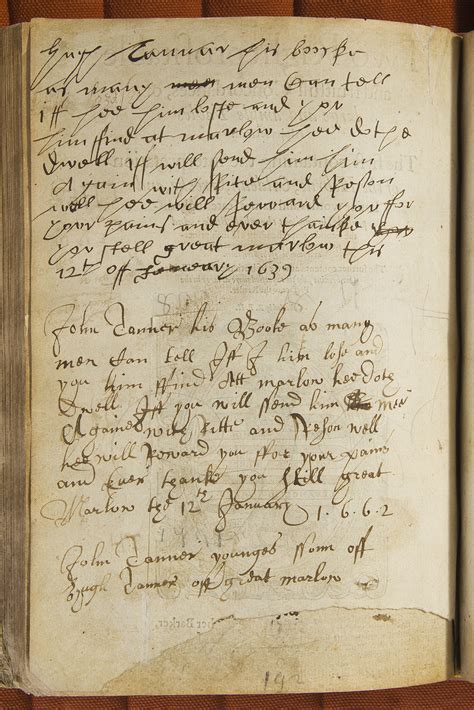 Hugh Tannar his booke
as many men Can tell
Iff hee him losse and yor
him ffind at marlow hee dothe
dwell iff will send him him
Again with Rite and Reson
well hee will Reward yor for
yor pains and ever thanke
yor still great marlow this
12th off January 1639
John Tanner his Booke as many
men Can tell Iff I him lose and
you him ffind Att marlow hee doth
Dwell Iff you will ssend him mee
Againe with Ritte and Reson well
hee will Reward you ffor your pains
and Ever thanke you still great
Marlow the 12th January 1.6.6.2
John Tanner younges sonn off
Hugh Tanner off great marlow
192